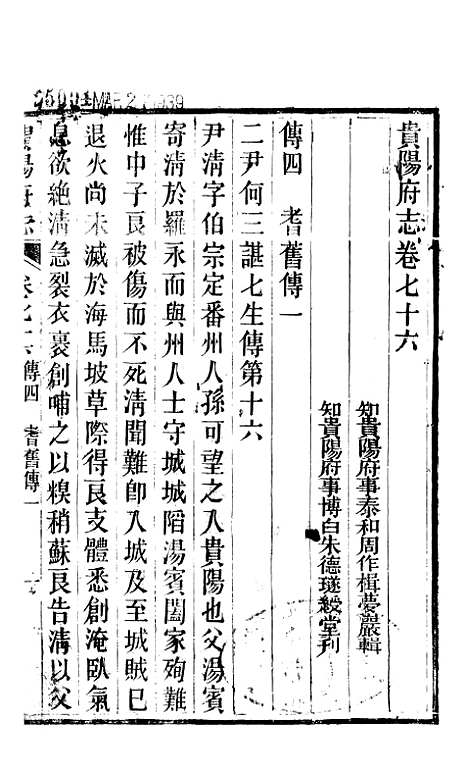 貴陽府志卷七十六
知貴陽府事泰和周作楫夢巖輯
知貴陽府事博白朱德璲綬堂刊
傳四　耆舊傳一
二尹何三諶七生傳第十六
尹淸字伯宗定番州人孫可望之入貴陽也父湯賓
寄淸於羅永而與州人士守城城䧟湯賓闔家殉難
惟中子艮被傷而不死淸聞難卽入城及至城賊巳
退火尚未滅於海馬坡草際得艮支體悉創淹臥氣
息欲絶淸急裂衣裹創哺之以糗稍蘇艮告淸以父
貴陽府志　卷七十六　傳四　耆舊傳一
MAR 2 1939